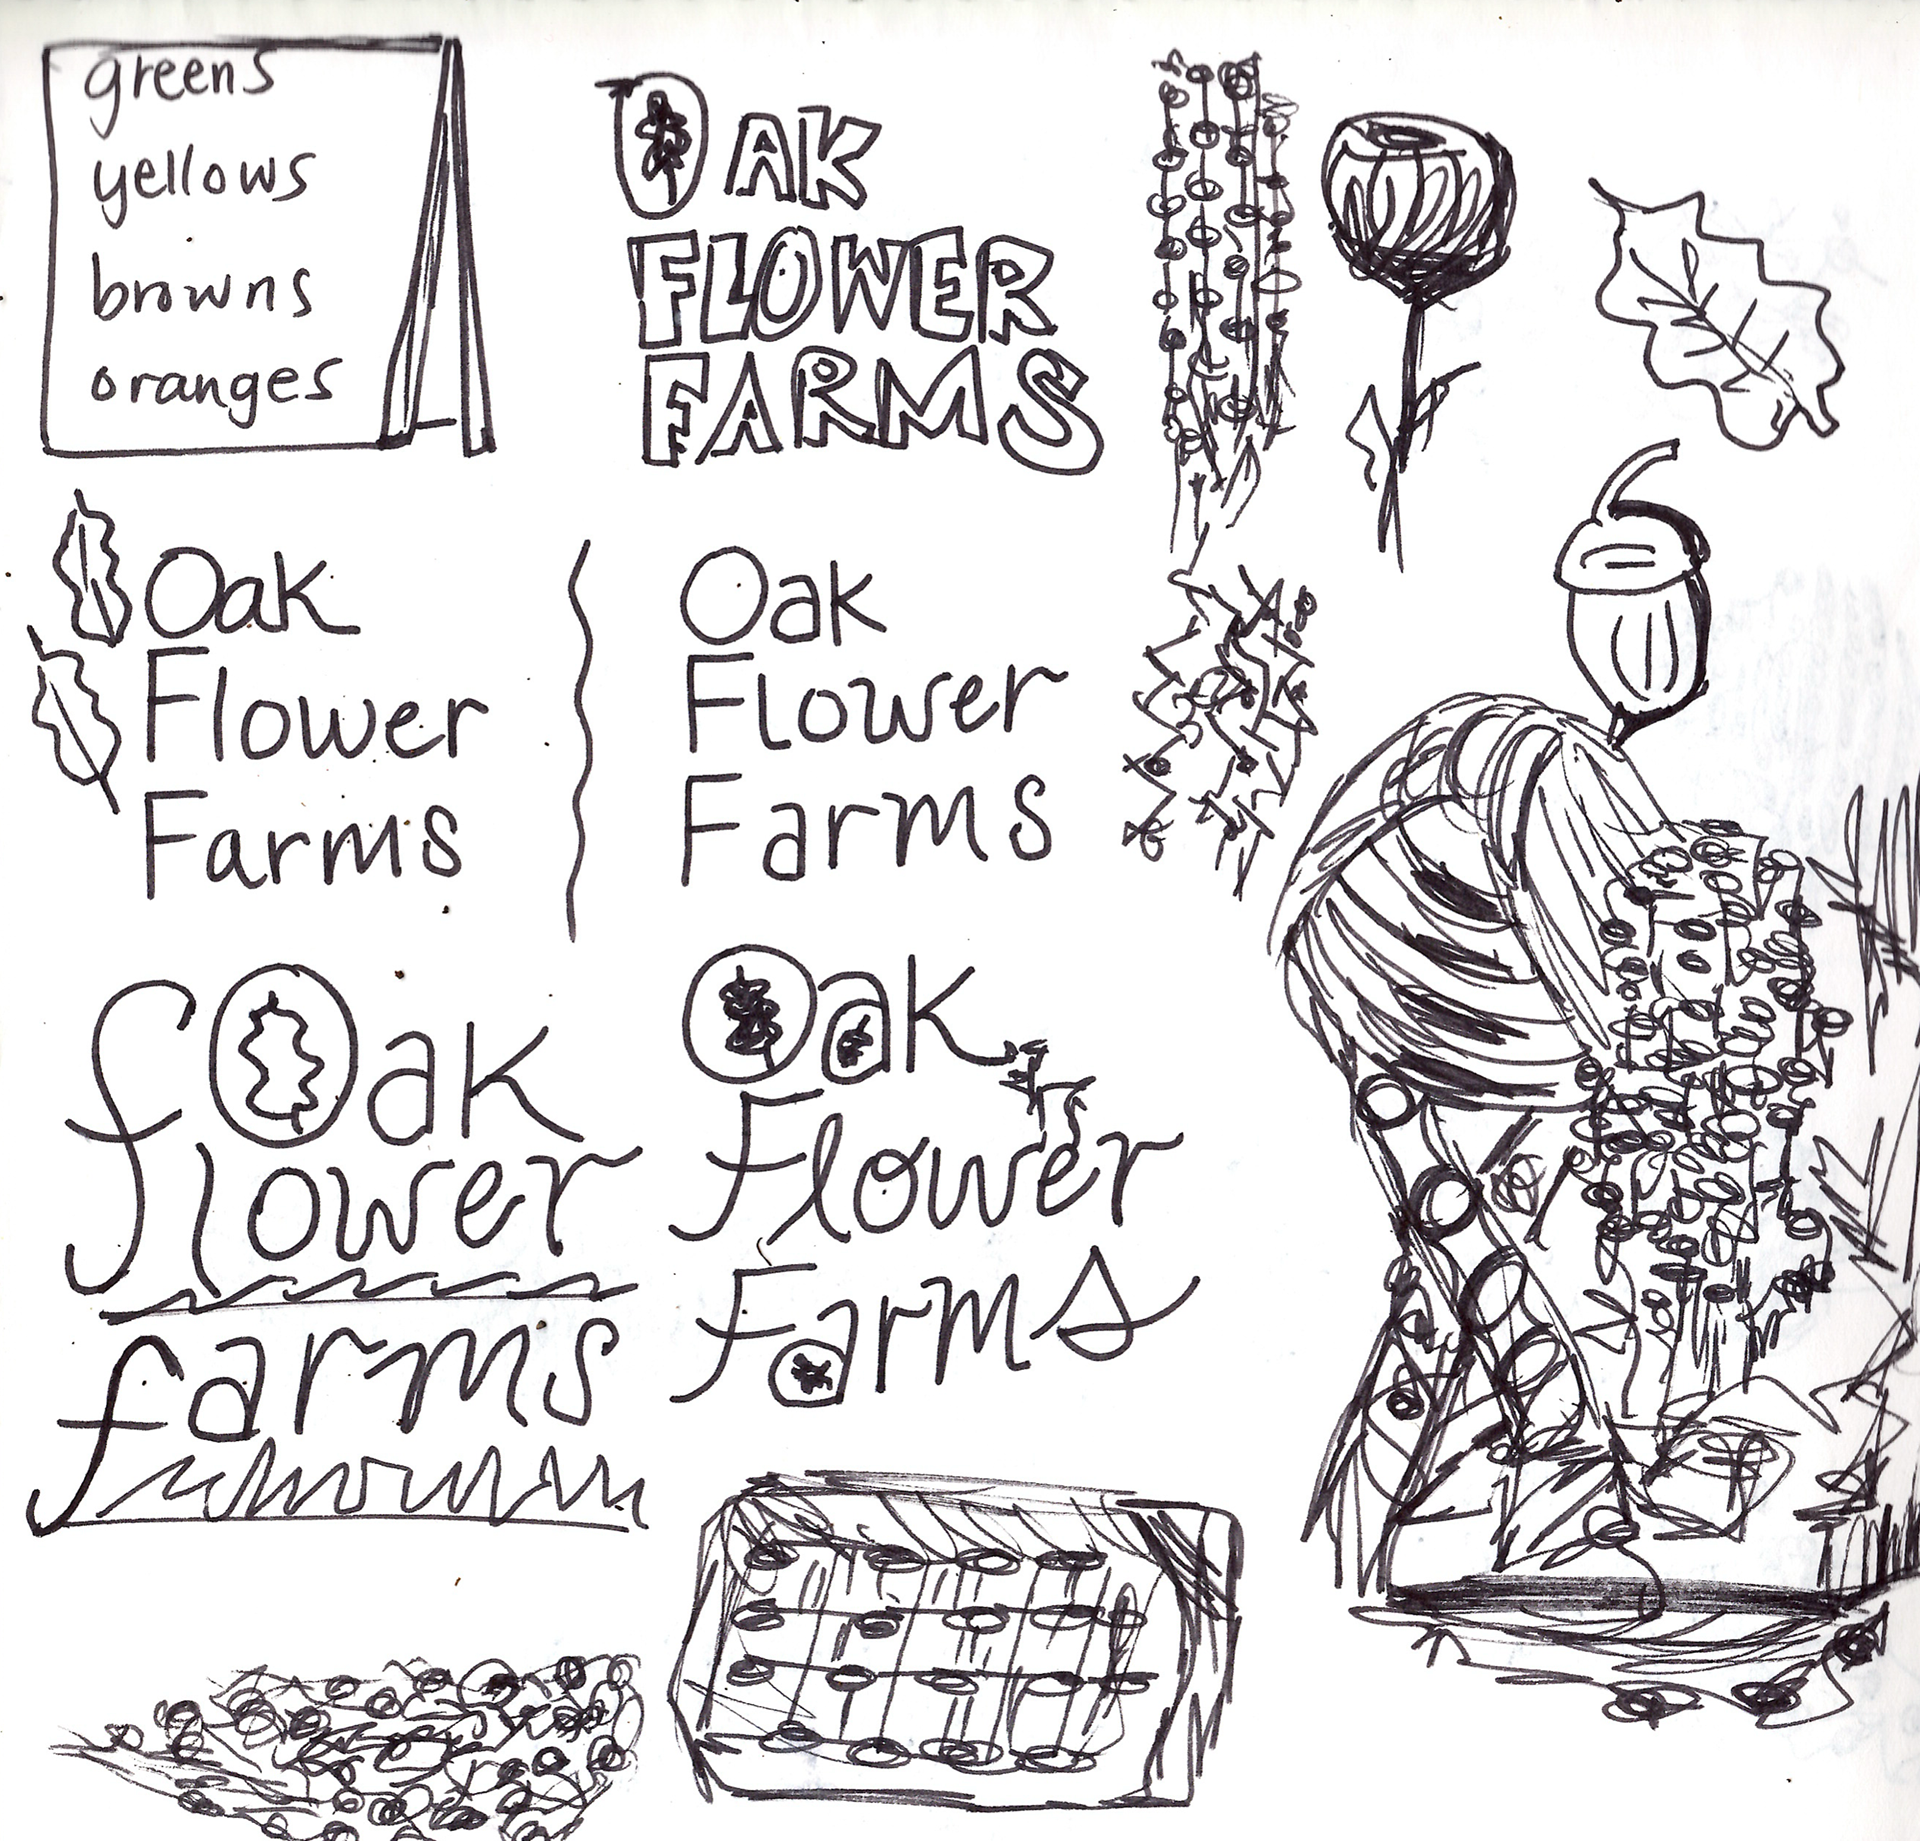 greens
yellows
browns
oranges
OAK
FLOWER
FARMS
Oak
Flower
Farms
Oak
Flower
Farms
Oak
flower
farms
Oak
Flower
Farms